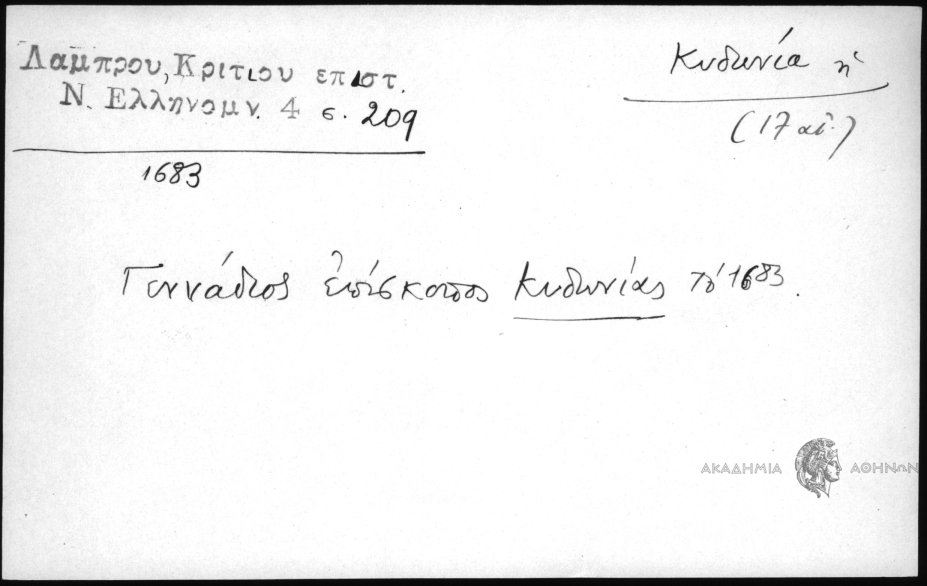 Λαμπρου, Κριτιου επιστ.
Ν. Ελληνομν. 4 σ. 209
1683
Κυδωνία ἡ
(17 αἰ.)
Γεννάδιος ἐπίσκοπος Κυδωνίας τὸ 1683.
ΑΚΑΔΗΜΙΑ ΑΘΗΝΩΝ